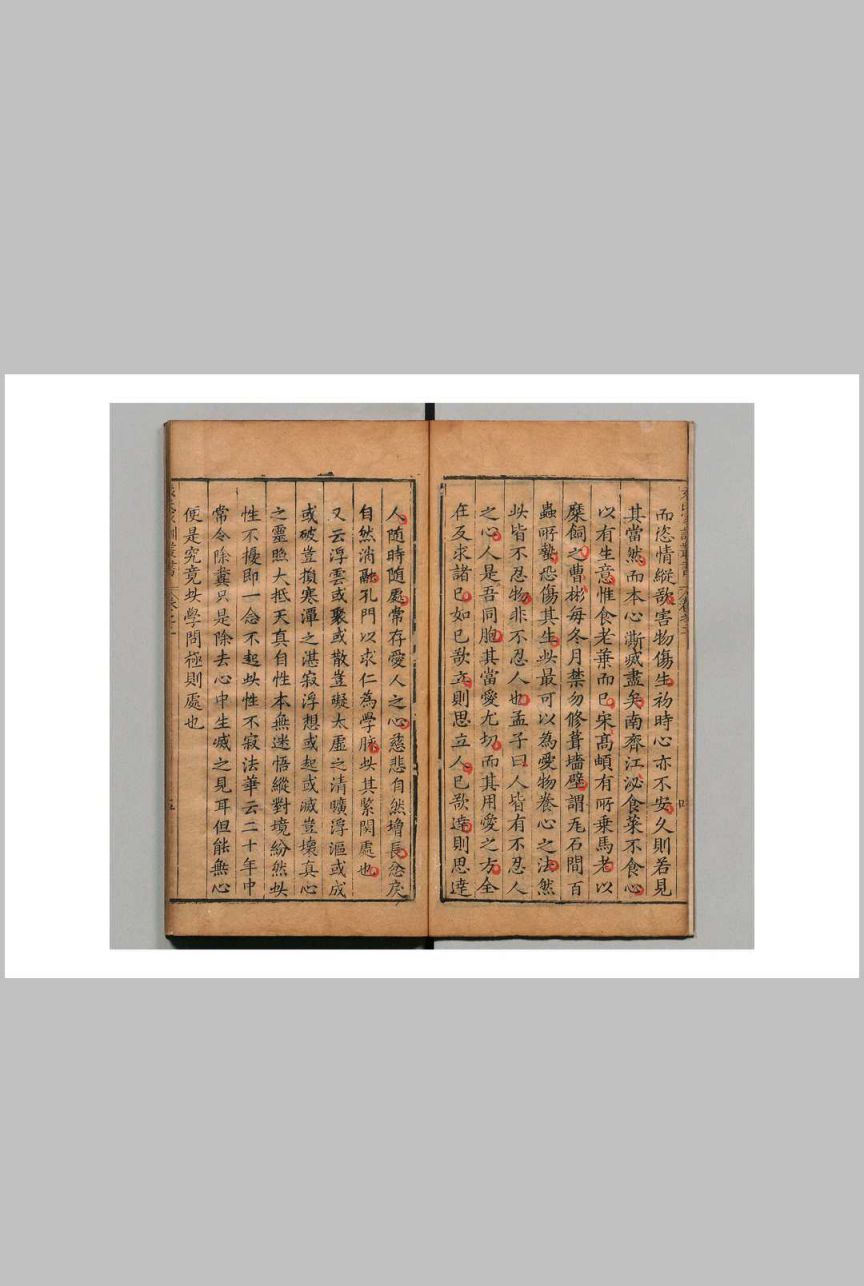 而恣情縱欲害物傷生初時心亦不安久則若見
其當然而本心澌滅盡矣南齊江泌食菜不食心
以有生意惟食老葉而已宋高頔有所乗馬老以
糜飼之曹彬每冬月禁勿修葺墻壁謂瓦石間百
蟲所蟄恐傷其生此最可以為愛物養心之法然
此皆不忍物非不忍人也孟子曰人皆有不忍人
之心人是吾同胞其當愛尤切而其用愛之方全
在反求諸已如已欲立則思立人已欲達則思達
人随時随處常存愛人之心慈悲自然增長忿戾
自然消融孔門以求仁為學脉此其緊関處也
又云浮雲或聚或散豈礙太虛之清曠浮漚或成
或破豈損寒潭之湛寂浮想或起或滅豈壞真心
之靈照大抵天真自性本無迷悟縱對境紛然此
性不擾即一念不起此性不寂法華云二十年中
常令除糞只是除去心中生滅之見耳但能無心
便是究竟此學問極則處也